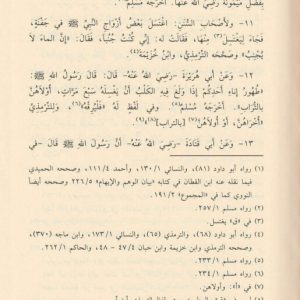 بِفَضْلِ مَيْمُونَةَ رَضِيَ اللهُ عَنْهَا. أَخْرَجَهُ مُسْلِمٌ
١١- وَلِأَصْحَابِ السُّنَنِ: اغْتَسَلَ بَعْضُ أَزْوَاجِ النَّبِيِّ ﷺ فِي جَفْنَةٍ،
فَجَاءَ لِيَغْتَسِلَ(٣) مِنْهَا، فَقَالَتْ لَهُ: إِنِّي كُنْتُ جُنُبًا، فَقَالَ: «إِنَّ المَاءَ لَا
يُجْنِبُ» وَصَحَّحَهُ التِّرْمِذِيُّ، وَابْنُ خُزَيْمَةَ(٤).
١٢- وَعَنْ أَبِي هُرَيْرَةَ -رَضِيَ اللهُ عَنْهُ- قَالَ: قَالَ رَسُولُ اللهِ ﷺ:
«طُهُورُ إِنَاءِ أَحَدِكُمْ إِذَا وَلَغَ فِيهِ الكَلْبُ أَنْ يَغْسِلَهُ سَبْعَ مَرَّاتٍ، أُولَاهُنَّ
بِالتُّرَابِ». أَخْرَجَهُ مُسْلِمٌ(٥). وَفِي لَفْظٍ لَهُ «فَلْيُرِقْهُ»(٦)، وَلِلتِّرْمِذِيِّ
«أُخْرَاهُنَّ، أَوْ أُولَاهُنَّ(٧) [بِالتُّرَابِ]»
١٣- وَعَنْ أَبِي قَتَادَةَ -رَضِيَ اللهُ عَنْهُ- أَنَّ رَسُولَ اللهِ ﷺ قَالَ -فِي
(١) رواه أبو داود (٨١)، والنسائي ١٣٠/١، وأحمد ١١١/٤، وصححه الحميدي
فيما نقله عنه ابن القطان في كتابه «بيان الوهم والإيهام» ٢٢٦/٥ وصححه أيضاً
النووي كما في «المجموع» ١٩١/٢.
(٢) رواه مسلم ٢٥٧/١.
(٣) في «ق» يغتسل.
(٤) رواه أبو داود (٦٨)، والترمذي (٦٥)، والنسائي ١٧٣/١، وابن ماجه (٣٧٠)،
وصححه الترمذي وابن خزيمة وابن حبان ٤٧/٤ - ٤٨، والحاكم ٢٦٢/١.
(٥) رواه مسلم ٢٣٣/١.
(٦) رواه مسلم ٢٣٤/١.
(٧) في «أ»: وأولاهن.